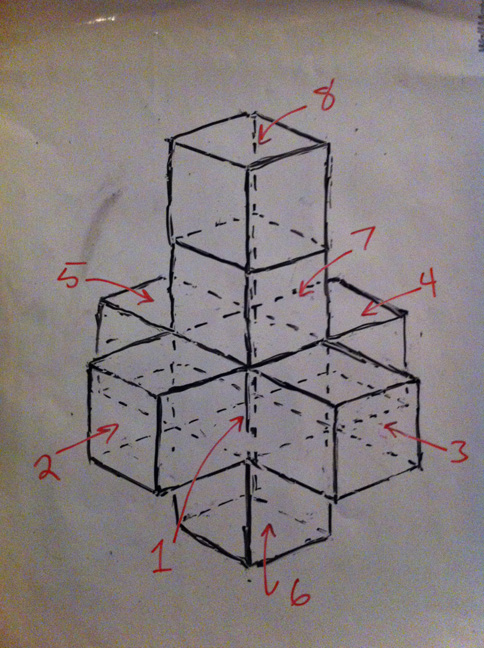 8
7
5
4
2
3
1
6